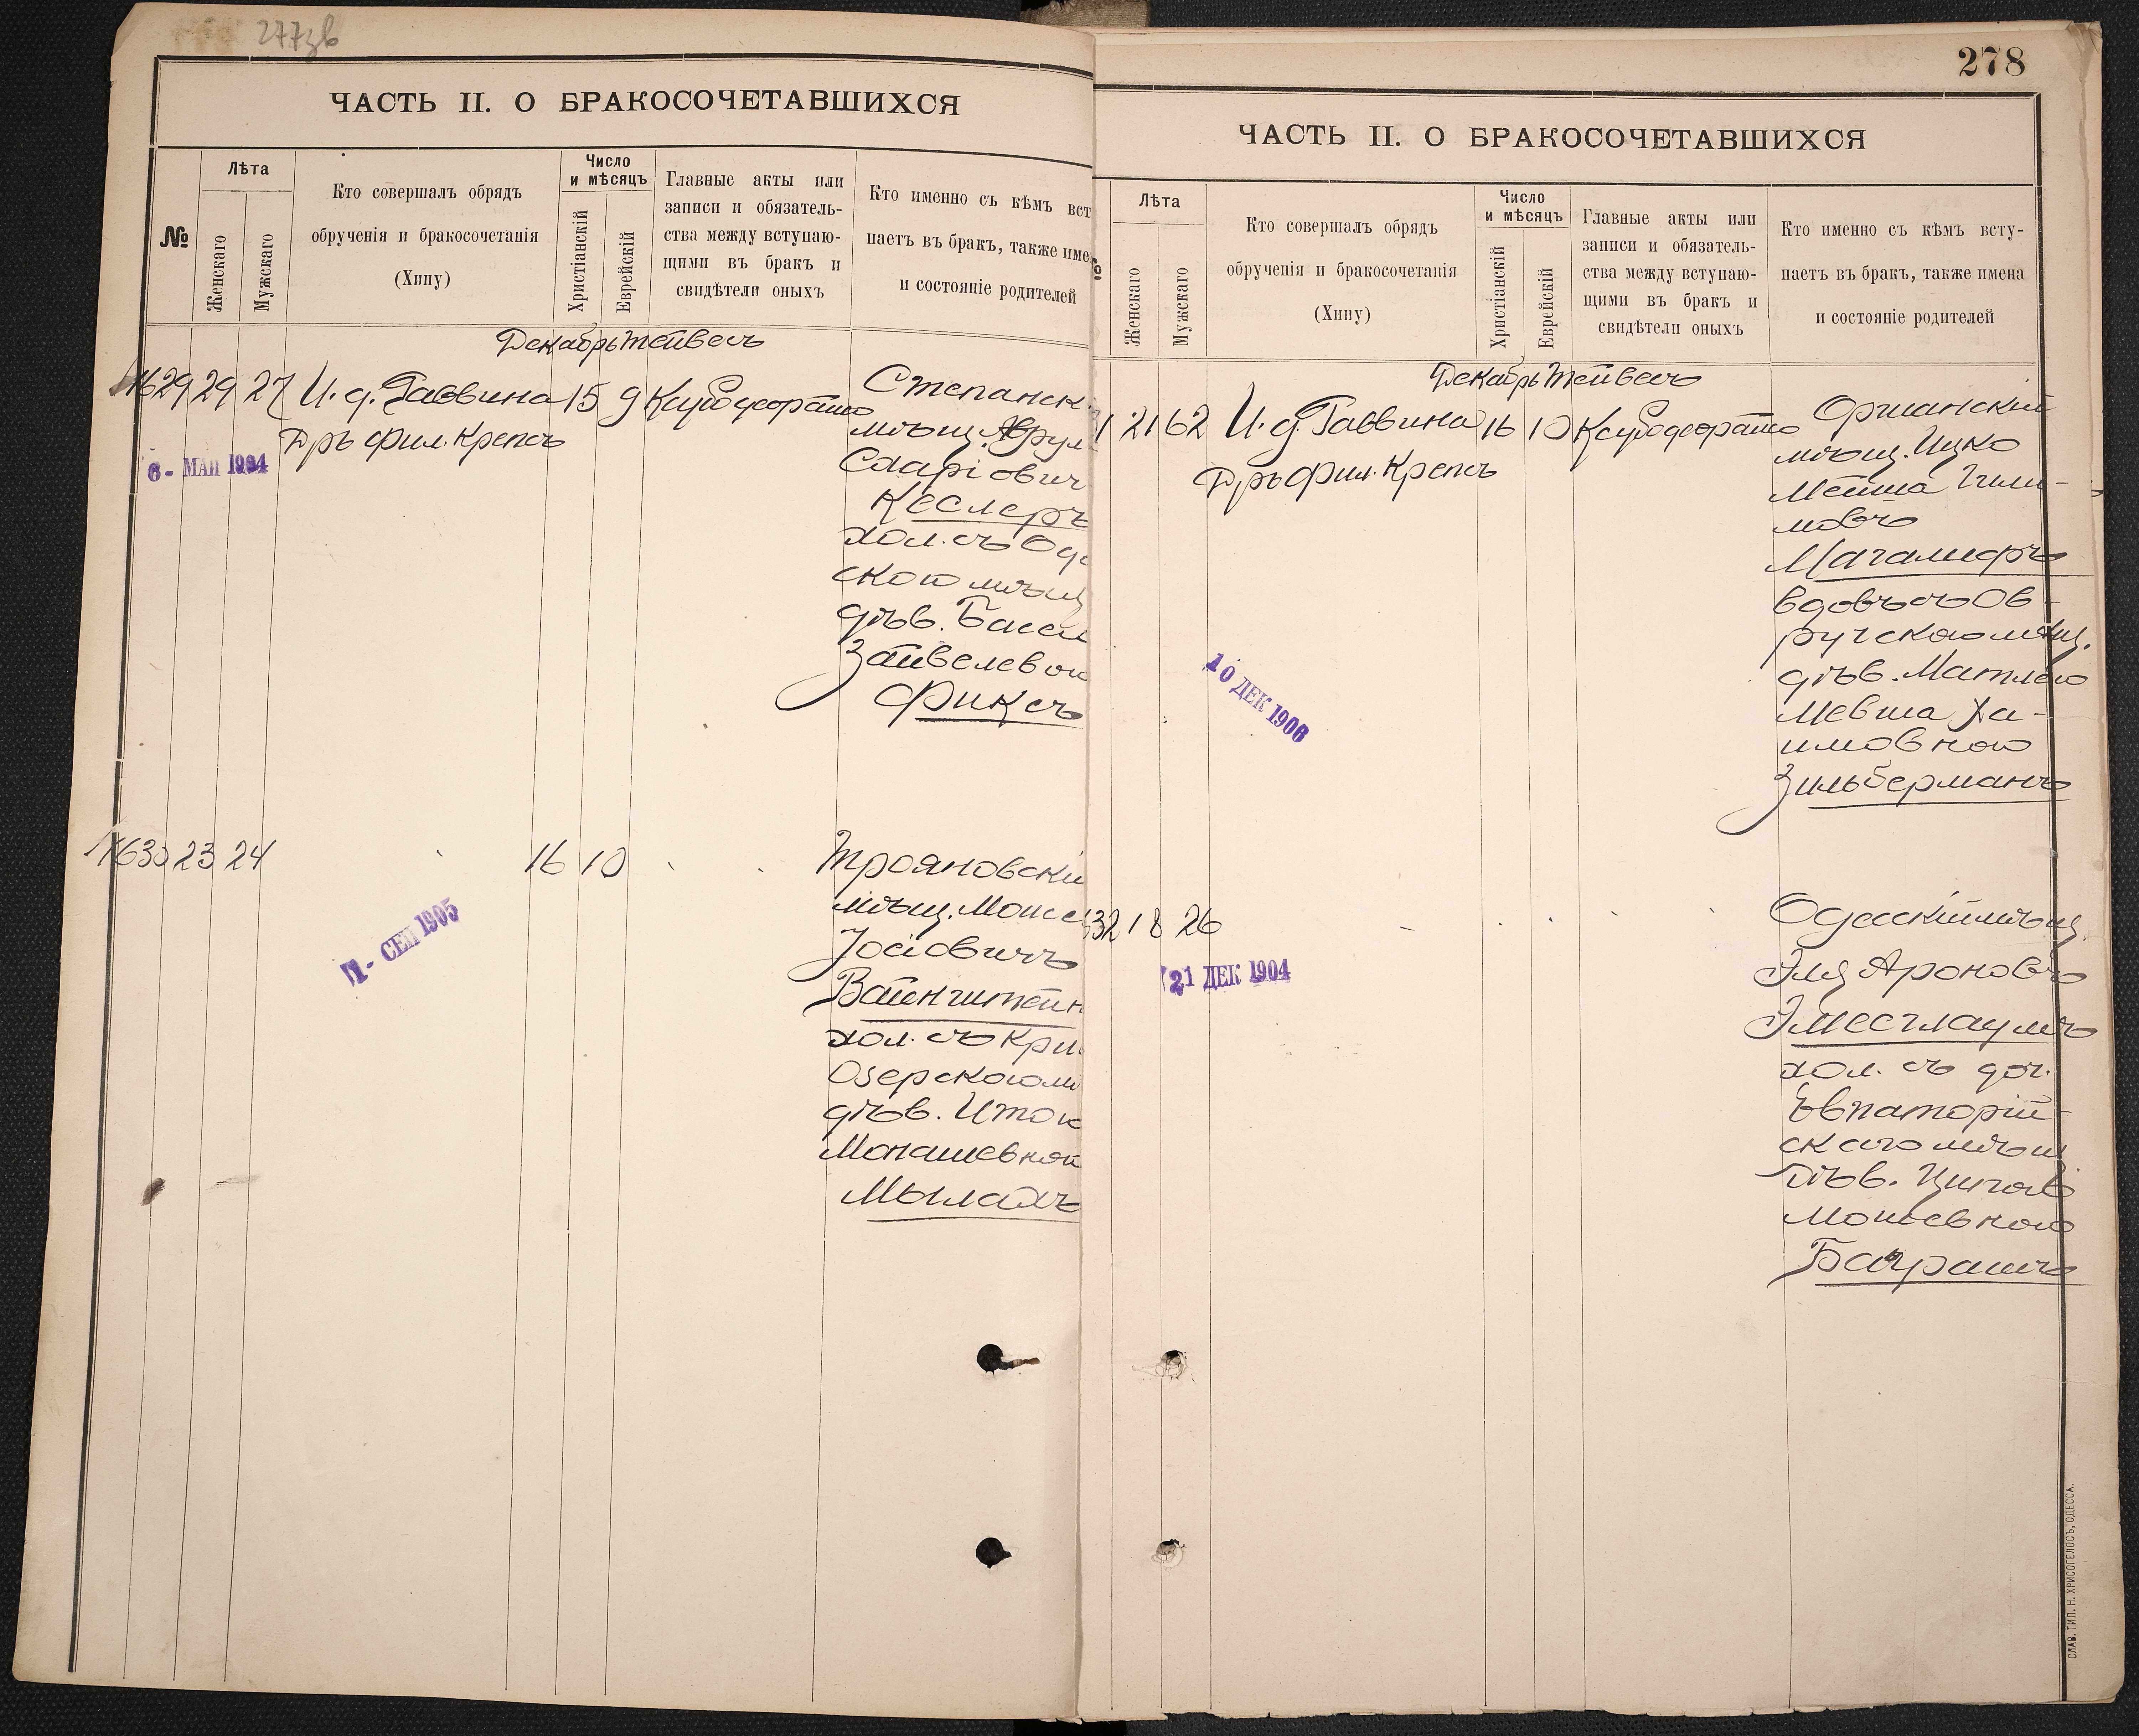 277зв
ЧАСТЬ II. О БРАКОСОЧЕТАВШИХСЯ
№
Лѣта
Женскаго
Мужскаго
Кто совершалъ обрядъ
обрученія и бракосочетанія
(Хипу)
Число
и мѣсяцъ
Христіанскій
Еврейскій
Главные акты или
записи и обязатель-
ства между вступаю-
щими въ бракъ и
свидѣтели оныхъ
Кто именно съ кѣмъ вст
паетъ въ бракъ, также име
и состояніе родителей
Декабрь Тейвесъ
1629 29 27 И. д. Раввина 15 9
Дръ Фил. Крепсъ
6- МАЙ 1904
Степанск
мѣщ.
Кеслеръ
хол. съ Оде
скою мѣщ
дѣв. Басси
Зайвелевой
Фиксъ
1630 23 24 16 10
1- СЕП 1905
Трояновскій
мѣщ. Моисе
Іосіовичъ
Вайнштейн
хол. съ Кри
Озерскою м
дѣв. Итою
Монашевной
Мылахъ
278
ЧАСТЬ II. О БРАКОСОЧЕТАВШИХСЯ
Лѣта
Женскаго
Мужскаго
Кто совершалъ обрядъ
обрученія и бракосочетанія
(Хипу)
Число
и мѣсяцъ
Христіанскій
Еврейскій
Главные акты или
записи и обязатель-
ства между вступаю-
щими въ бракъ и
свидѣтели оныхъ
Кто именно съ кѣмъ всту-
паетъ въ бракъ, также имена
и состояніе родителей
Декабрь Тейвесъ
1 21 62 И. д. Раввина 16 10
Дръ Фил. Крепсъ
10 ДЕК 1906
Оршанскій
мѣщ. Ицко
Мейша
Магалифъ
вдовъ съ Ов-
ручскою мѣщ.
дѣв. Матлею
Мевша Ха-
имовною
Зильберманъ
32 18 26
21 ДЕК 1904
Одесскій мѣщ
Эля Ароновъ
Эмесглаумъ
хол. съ доч.
Евпаторій-
скаго мѣщ
дѣв.
Мошевною